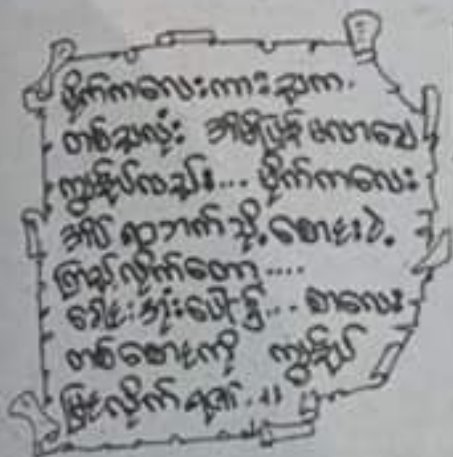 ဗိုက်ကလေးကားသူက.
တစ်သူလုံး အိမ်ပြန်မလာပေ
ကျွန်ုပ်လည်း... ဗိုက်ကလေး
အိပ် ရာဘက်သို့. စောင်းငဲ့.
ကြည့်လိုက်တော့....
ခေါင်းအုံးပေါ်၌... စာလေး
တစ်စောင်ကို ကျွန်ုပ်
မြင်လိုက်ရ၏.။